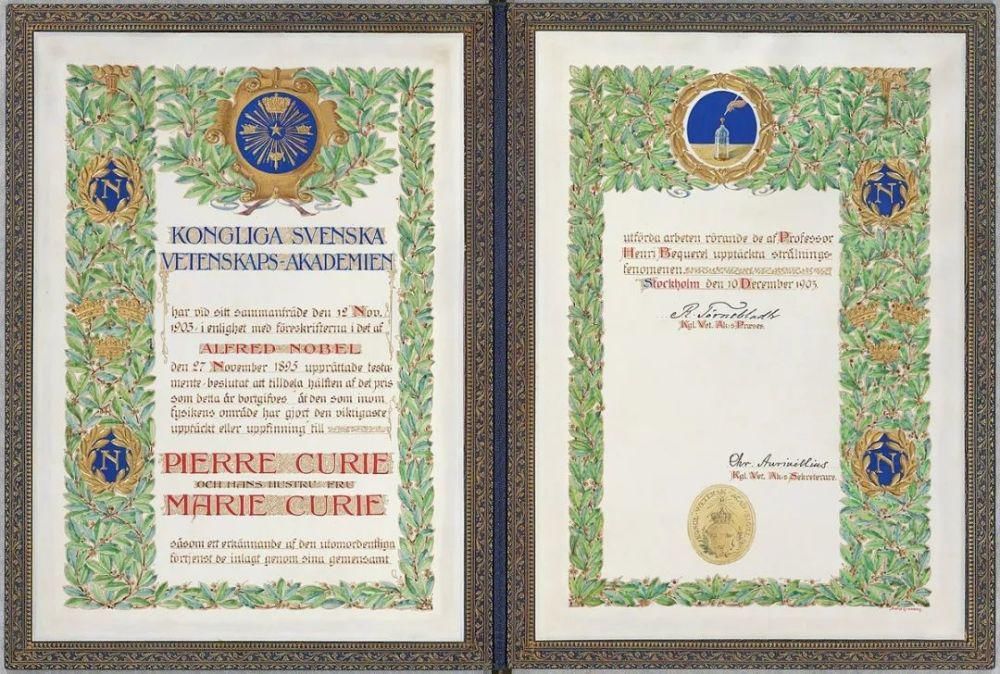 N
N
KONGLIGA SVENSKA
VETENSKAPS-AKADEMIEN
har vid sitt sammanträde den 12 Nov.
1903 i enlighet med föreskrifterna i det af
ALFRED NOBEL
den 27 November 1895 upprättade testa-
mente beslutat att tilldela hälften af det pris
som detta år bortgifves åt den som inom
fysikens område har gjort den viktigaste
upptäckt eller uppfinning till
PIERRE CURIE
OCH HANS HUSTRU FRU
MARIE CURIE
såsom ett erkännande af den utomordentliga
förtjenst de inlagt genom sina gemensamt
N
N
utförda arbeten rörande de af Professor
Henri Bequerel upptäckta strålnings-
fenomenen
Stockholm den 10 December 1903.
R. Törnebladh
Kgl. Vet. Ak:s Præses.
Chr. Aurivillius
Kgl. Vet. Ak:s Sekreterare.